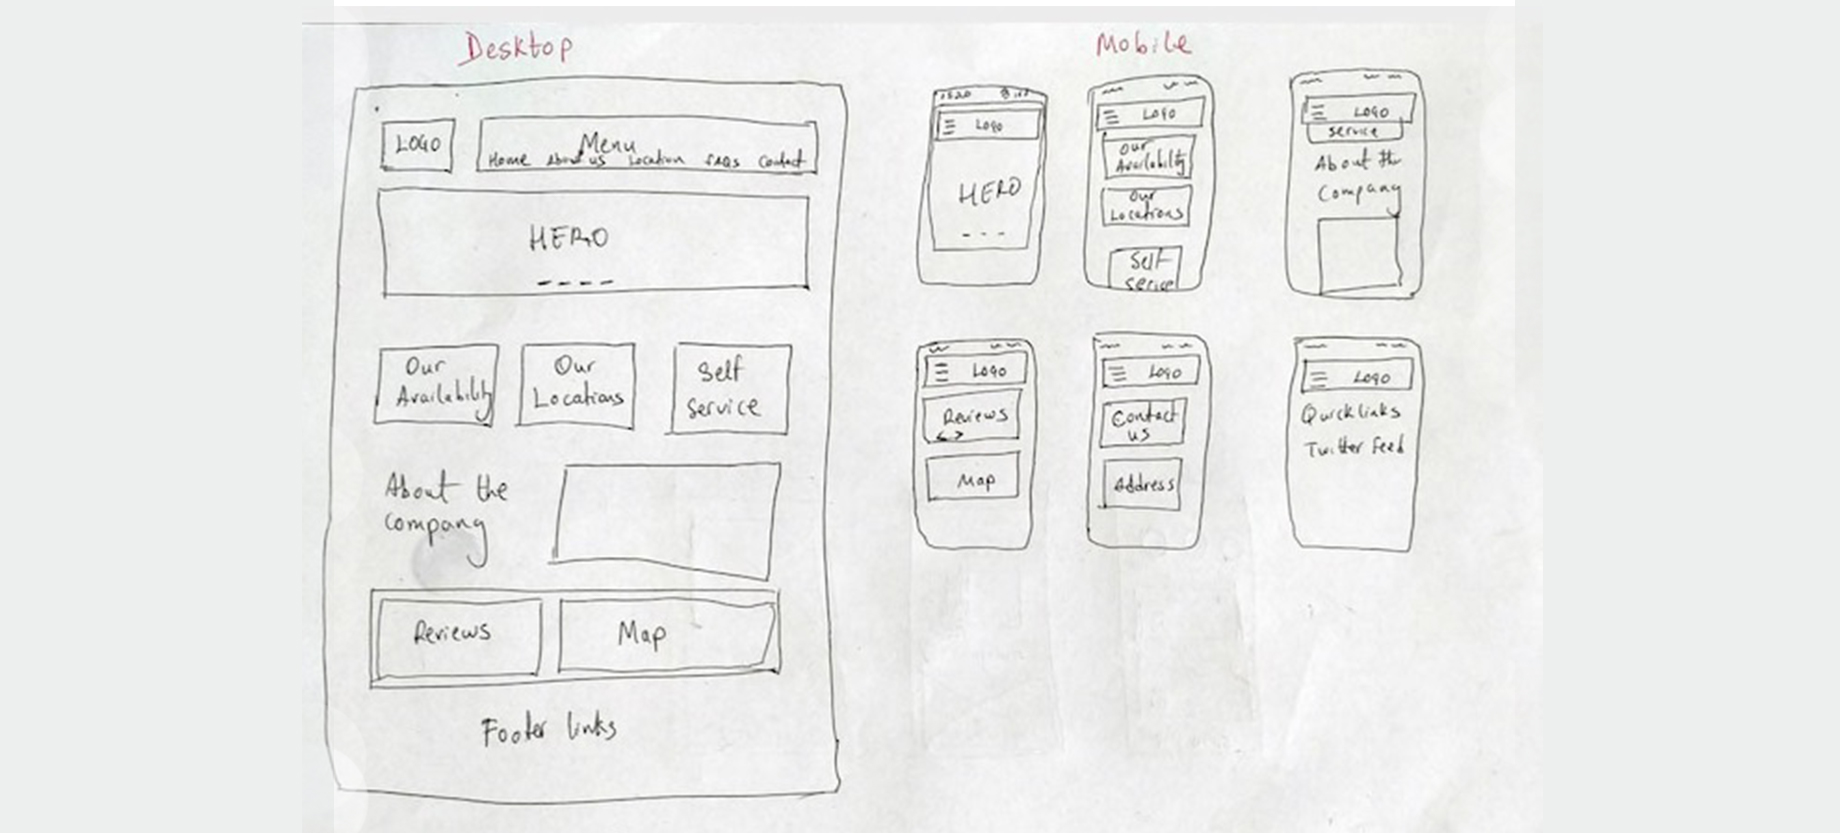 Desktop
LOGO
Menu
Home About us Location FAQs Contact
HERO
Our
Availability
Our
Locations
Self
Service
About the
Company
Reviews
Map
Footer links
Mobile
Logo
HERO
Logo
Our
Availability
Our
Locations
Self
Logo
service
About the
Company
Logo
Reviews
< >
Map
Logo
Contact
us
Address
Logo
Quick links
Twitter feed